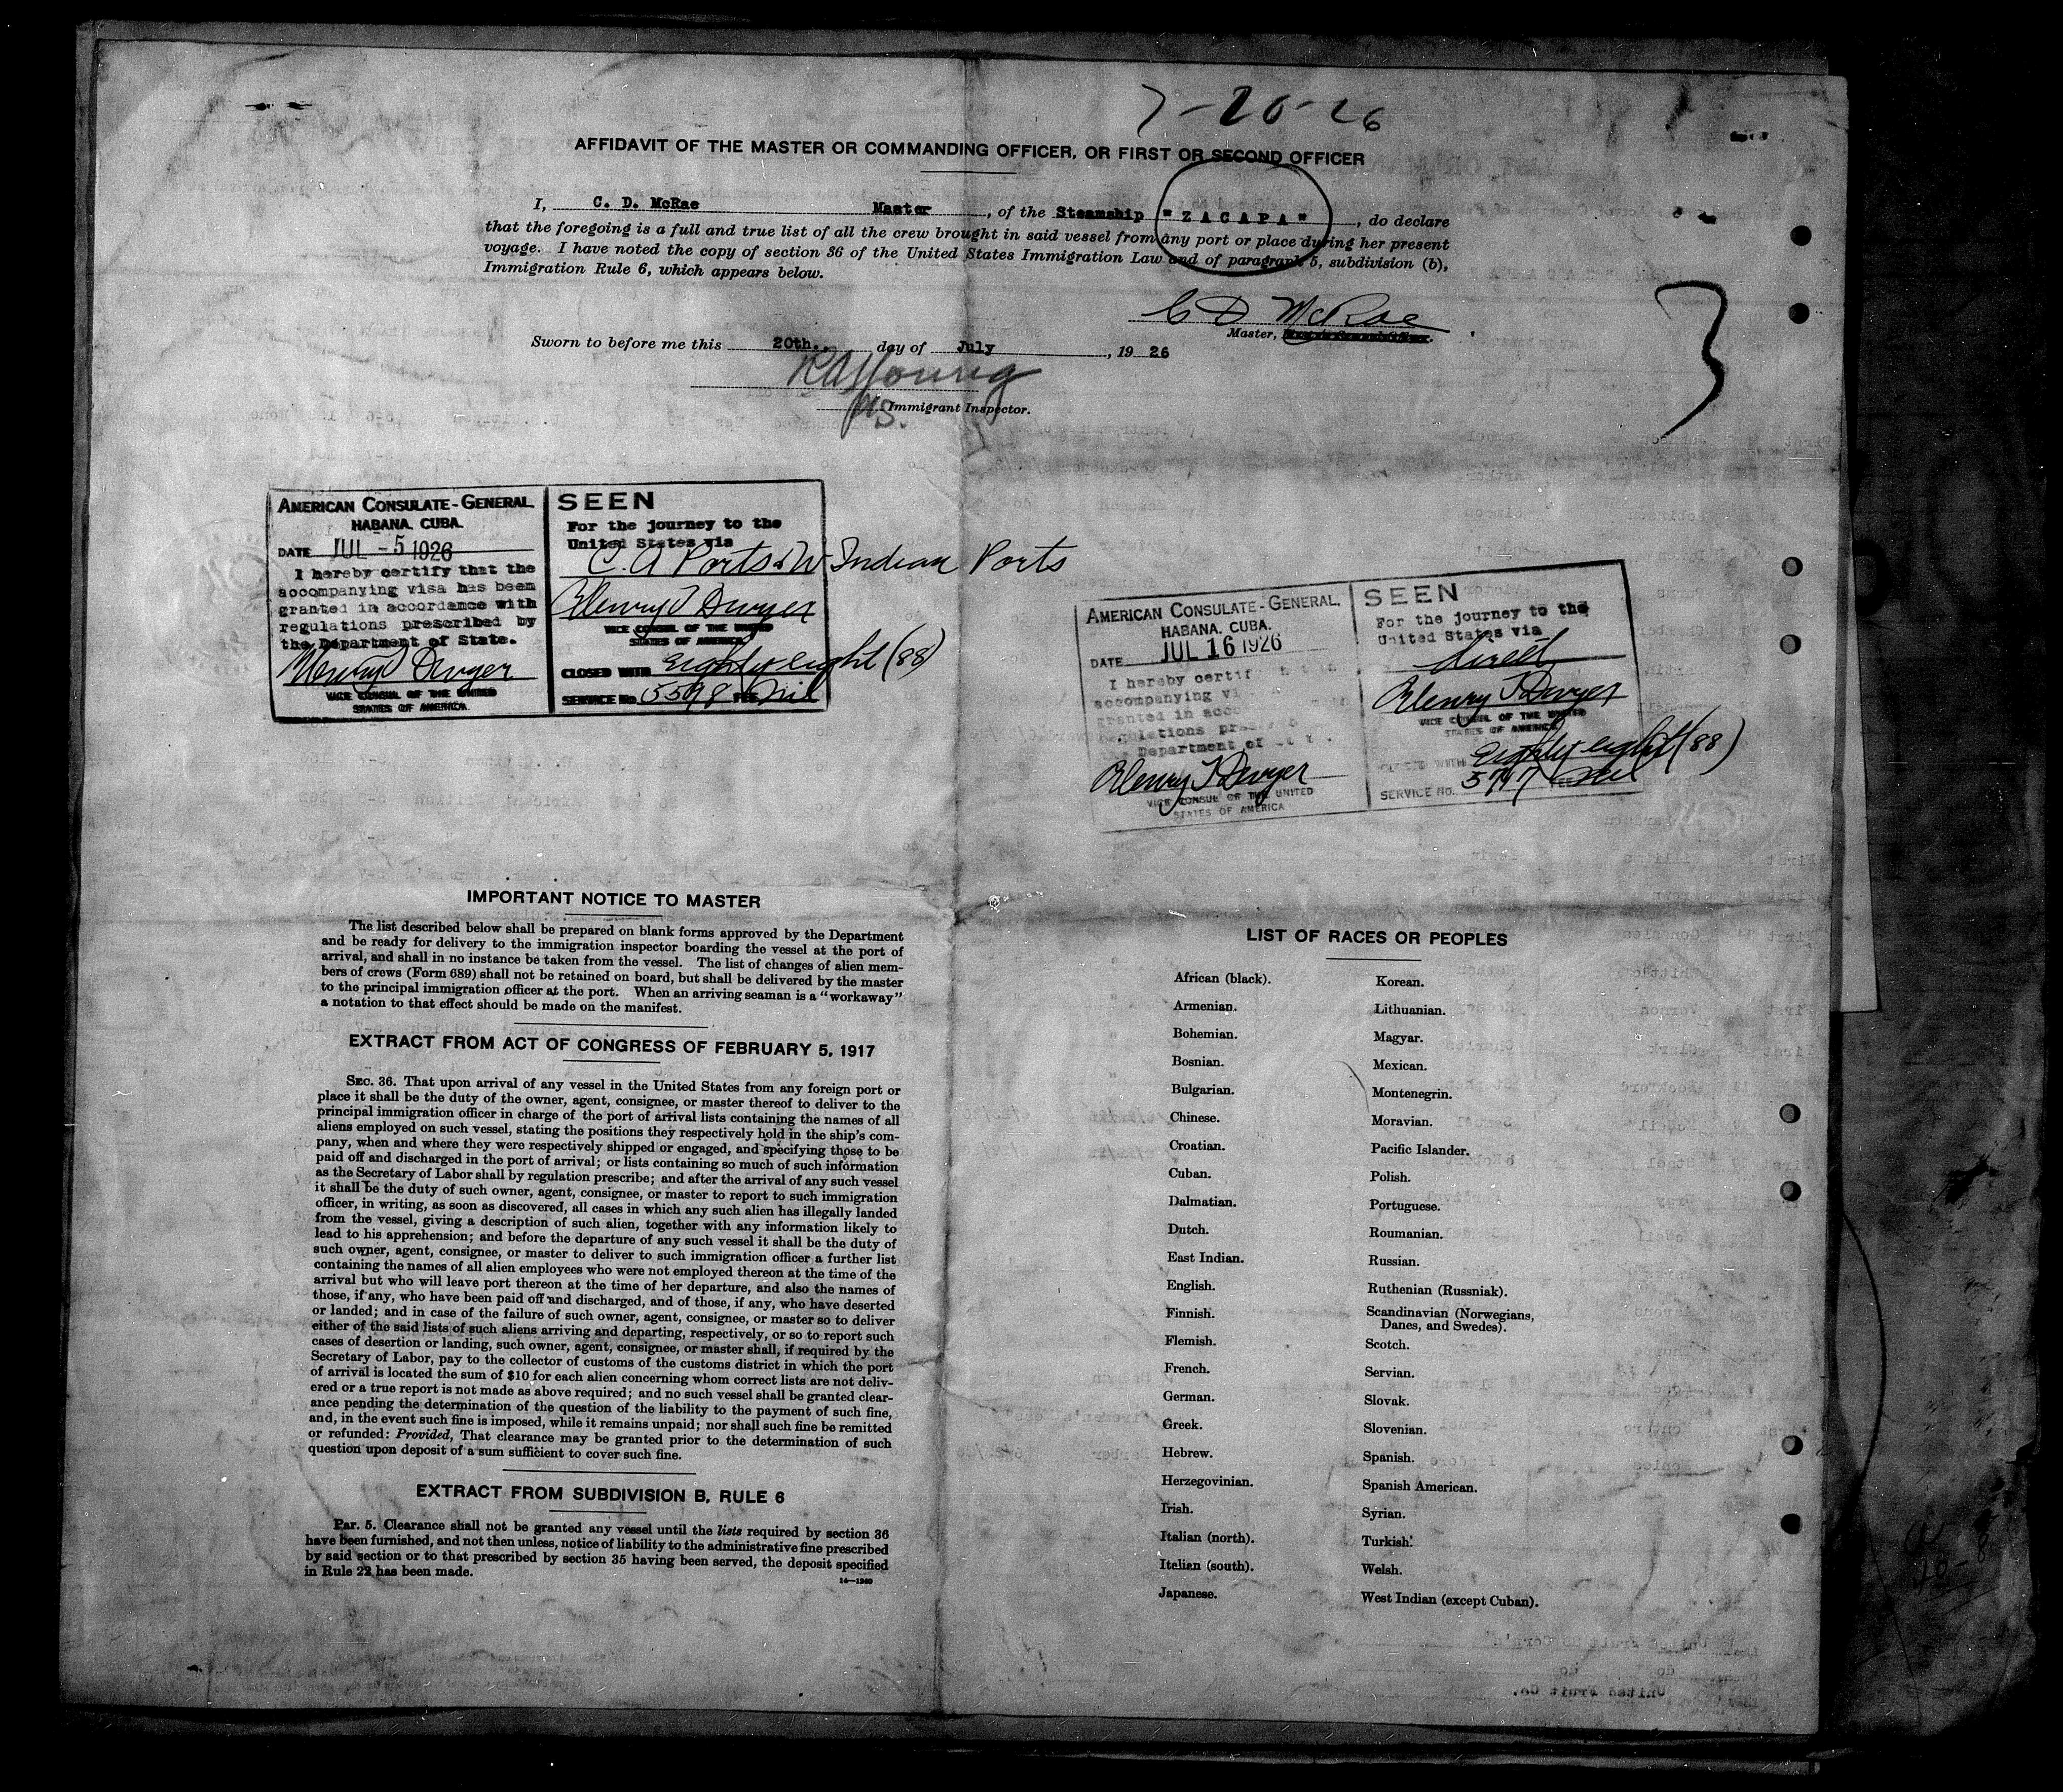 7-20-26
AFFIDAVIT OF THE MASTER OR COMMANDING OFFICER, OR FIRST OR SECOND OFFICER
I, C. D. McRae Master, of the Steamship "ZACAPA", do declare
that the foregoing is a full and true list of all the crew brought in said vessel from any port or place during her present
voyage. I have noted the copy of section 36 of the United States Immigration Law and of paragraph 5, subdivision (b),
Immigration Rule 6, which appears below.
C D McRae
Master,
3
Sworn to before me this 20th. day of July, 19 26
RAYoung
US. Immigrant Inspector.
AMERICAN CONSULATE-GENERAL
HABANA, CUBA.
DATE JUL -5 1926
I hereby certify that the
accompanying visa has been
granted in accordance with
regulations prescribed by
the Department of State.
Henry T Dwyer
VICE CONSUL OF THE UNITED
STATES OF AMERICA
SEEN
For the journey to the
United States via
C. A Ports & W Indian Ports
Henry T Dwyer
VICE CONSUL OF THE UNITED
STATES OF AMERICA
CLOSED WITH Eighty eight (88)
SERVICE No. 5598 FEE Nil
AMERICAN CONSULATE-GENERAL,
HABANA, CUBA.
DATE JUL 16 1926
I hereby certif
accompanying vi
granted in acc
regulations pr
Department of
Henry T Dwyer
VICE CONSUL OF THE UNITED
STATES OF AMERICA
SEEN
For the journey to the
United States via
direct
Henry T Dwyer
VICE CONSUL OF THE UNITED
STATES OF AMERICA
CLOSED WITH Eighty eight (88)
SERVICE NO. 5717 FEE Nil
IMPORTANT NOTICE TO MASTER
The list described below shall be prepared on blank forms approved by the Department
and be ready for delivery to the immigration inspector boarding the vessel at the port of
arrival, and shall in no instance be taken from the vessel. The list of changes of alien mem-
bers of crews (Form 689) shall not be retained on board, but shall be delivered by the master
to the principal immigration officer at the port. When an arriving seaman is a "workaway"
a notation to that effect should be made on the manifest.
EXTRACT FROM ACT OF CONGRESS OF FEBRUARY 5, 1917
SEC. 36. That upon arrival of any vessel in the United States from any foreign port or
place it shall be the duty of the owner, agent, consignee, or master thereof to deliver to the
principal immigration officer in charge of the port of arrival lists containing the names of all
aliens employed on such vessel, stating the positions they respectively hold in the ship's com-
pany, when and where they were respectively shipped or engaged, and specifying those to be
paid off and discharged in the port of arrival; or lists containing so much of such information
as the Secretary of Labor shall by regulation prescribe; and after the arrival of any such vessel
it shall be the duty of such owner, agent, consignee, or master to report to such immigration
officer, in writing, as soon as discovered, all cases in which any such alien has illegally landed
from the vessel, giving a description of such alien, together with any information likely to
lead to his apprehension; and before the departure of any such vessel it shall be the duty of
such owner, agent, consignee, or master to deliver to such immigration officer a further list
containing the names of all alien employees who were not employed thereon at the time of the
arrival but who will leave port thereon at the time of her departure, and also the names of
those, if any, who have been paid off and discharged, and of those, if any, who have deserted
or landed; and in case of the failure of such owner, agent, consignee, or master so to deliver
either of the said lists of such aliens arriving and departing, respectively, or so to report such
cases of desertion or landing, such owner, agent, consignee, or master shall, if required by the
Secretary of Labor, pay to the collector of customs of the customs district in which the port
of arrival is located the sum of $10 for each alien concerning whom correct lists are not deliv-
ered or a true report is not made as above required; and no such vessel shall be granted clear-
ance pending the determination of the question of the liability to the payment of such fine,
and, in the event such fine is imposed, while it remains unpaid; nor shall such fine be remitted
or refunded: Provided, That clearance may be granted prior to the determination of such
question upon deposit of a sum sufficient to cover such fine.
EXTRACT FROM SUBDIVISION B, RULE 6
Par. 5. Clearance shall not be granted any vessel until the lists required by section 36
have been furnished, and not then unless, notice of liability to the administrative fine prescribed
by said section or to that prescribed by section 35 having been served, the deposit specified
in Rule 22 has been made.
14—1240
LIST OF RACES OR PEOPLES
African (black).
Armenian.
Bohemian.
Bosnian.
Bulgarian.
Chinese.
Croatian.
Cuban.
Dalmatian.
Dutch.
East Indian.
English.
Finnish.
Flemish.
French.
German.
Greek.
Hebrew.
Herzegovinian.
Irish.
Italian (north).
Italian (south).
Japanese.
Korean.
Lithuanian.
Magyar.
Mexican.
Montenegrin.
Moravian.
Pacific Islander.
Polish.
Portuguese.
Roumanian.
Russian.
Ruthenian (Russniak).
Scandinavian (Norwegians,
Danes, and Swedes).
Scotch.
Servian.
Slovak.
Slovenian.
Spanish.
Spanish American.
Syrian.
Turkish.
Welsh.
West Indian (except Cuban).